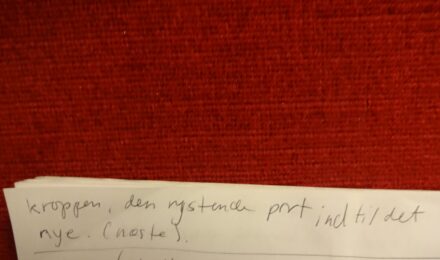 kroppen, den rystende port ind til det
nye. (næste).